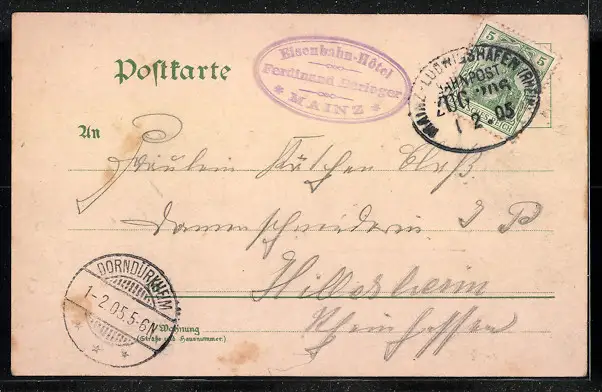 Postkarte
Eisenbahn-Hôtel
Ferdinand Düringer
* MAINZ *
5 5
MAINZ-LUDWIGSHAFEN (RHEIN)
BAHNPOST
ZUG
1 2 05
An
Fräulein Käthchen Bloß
Damenschneiderin I P
Hillesheim
Rheinhessen
DORNDÜRKHEIM
1-2.05.5-6N
* * *
Wohnung
(Straße und Hausnummer)